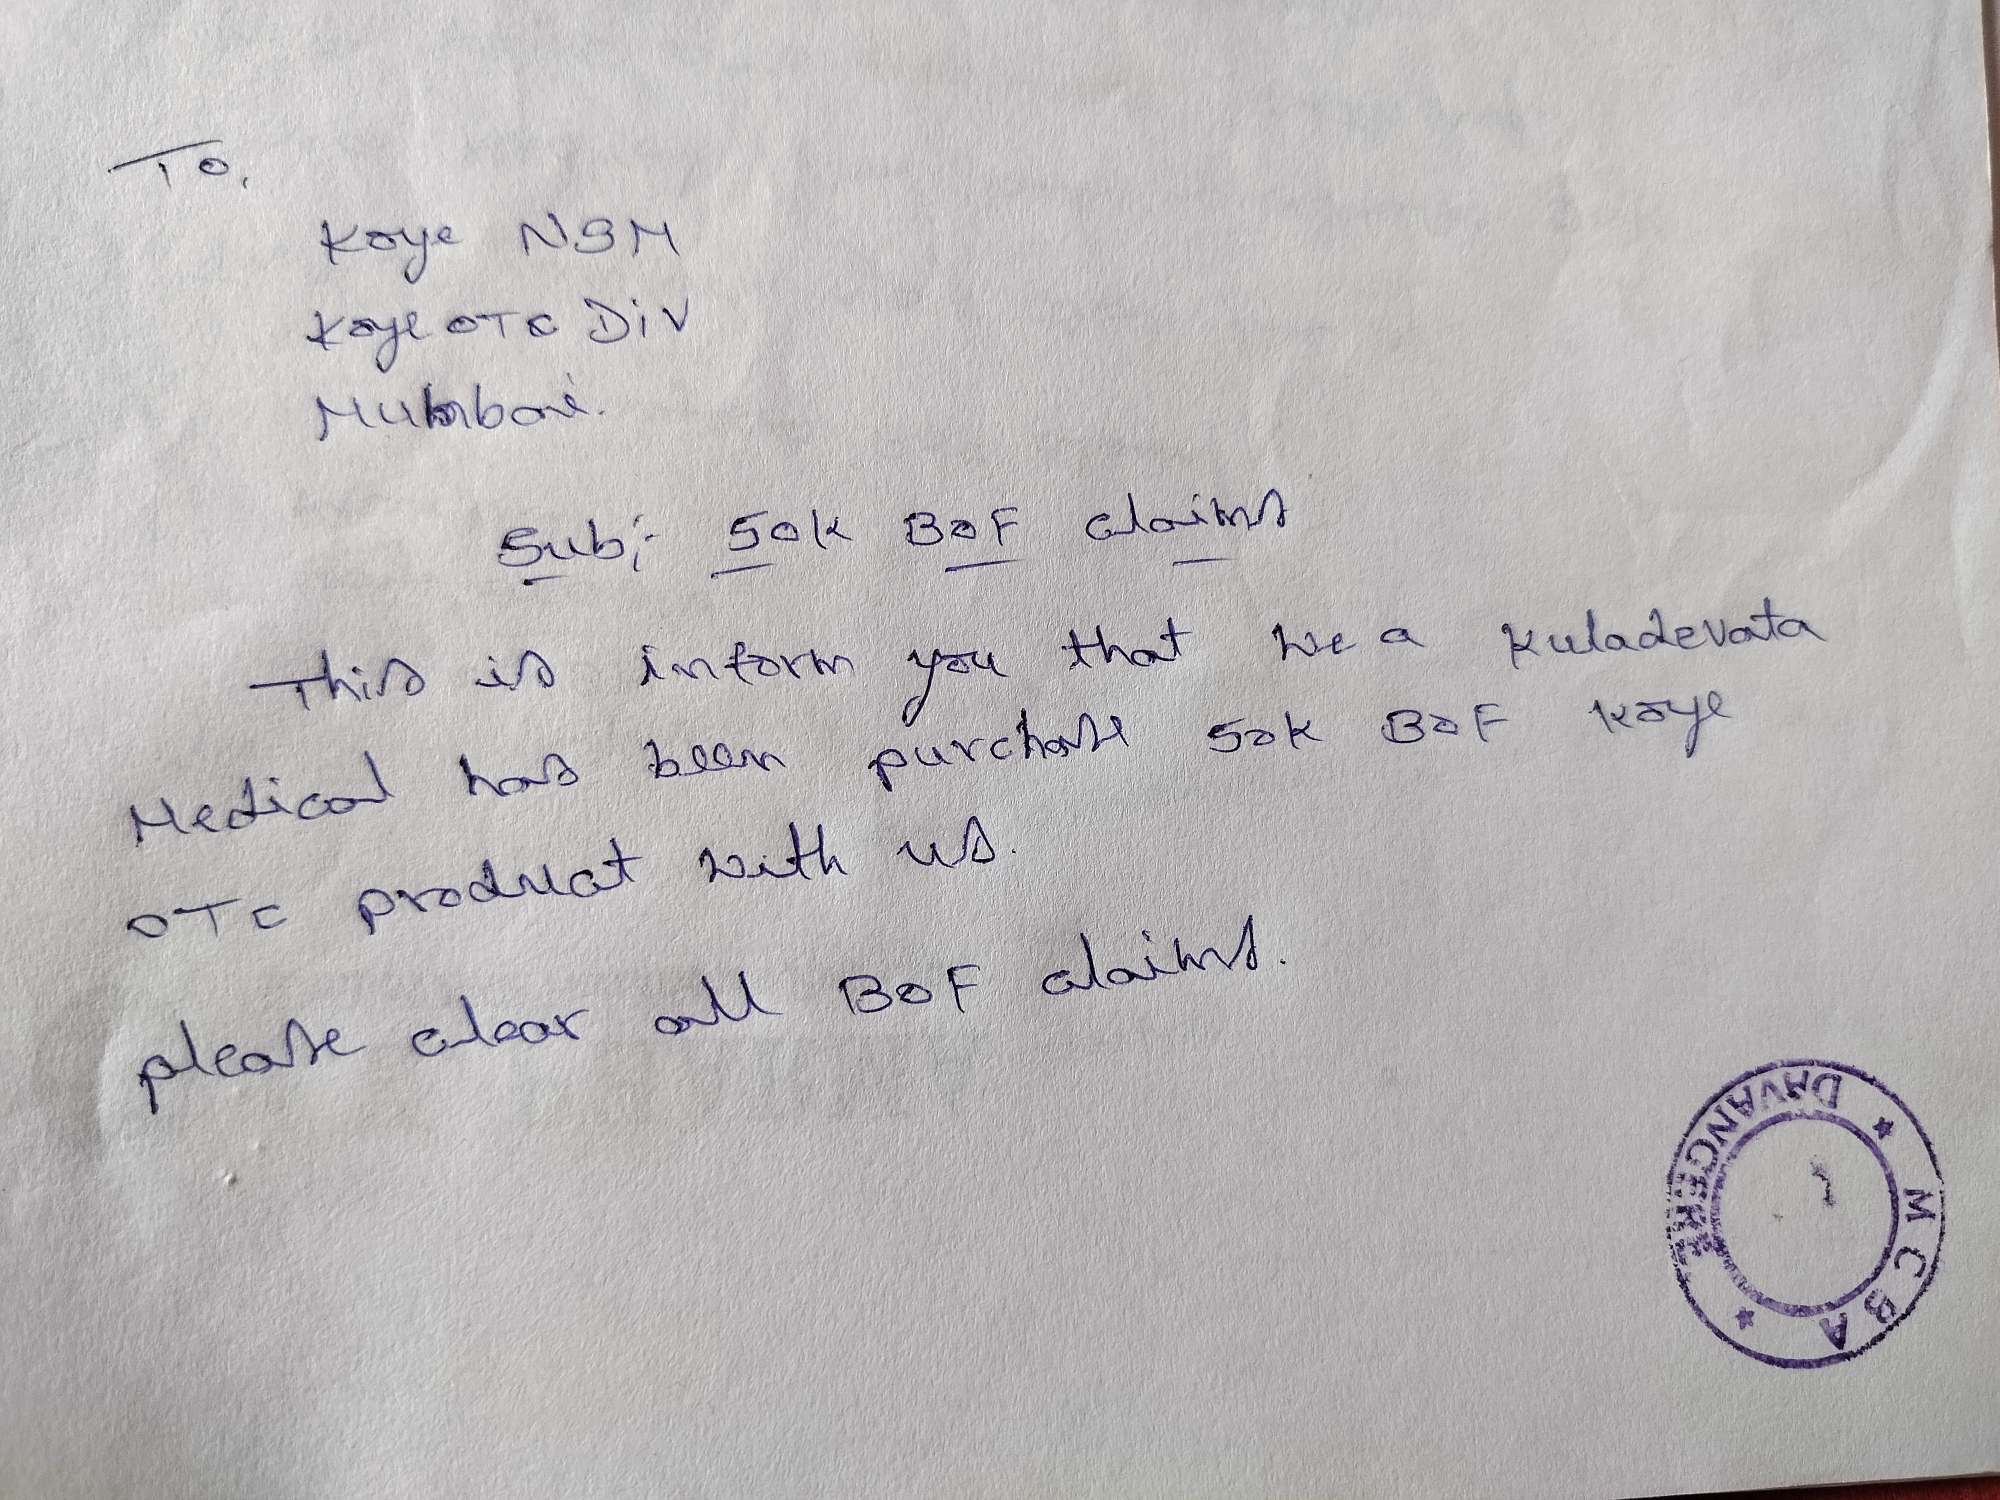 To,
Koye NSM
Koye OTC Div
Mumbai.
Sub:- 50K BOF claims
This is inform you that we a Kuladevata
Medical has been purchase 50K BOF Koye
OTC product with us.
please clear all BOF claims.
MCBA
DAVANGERE